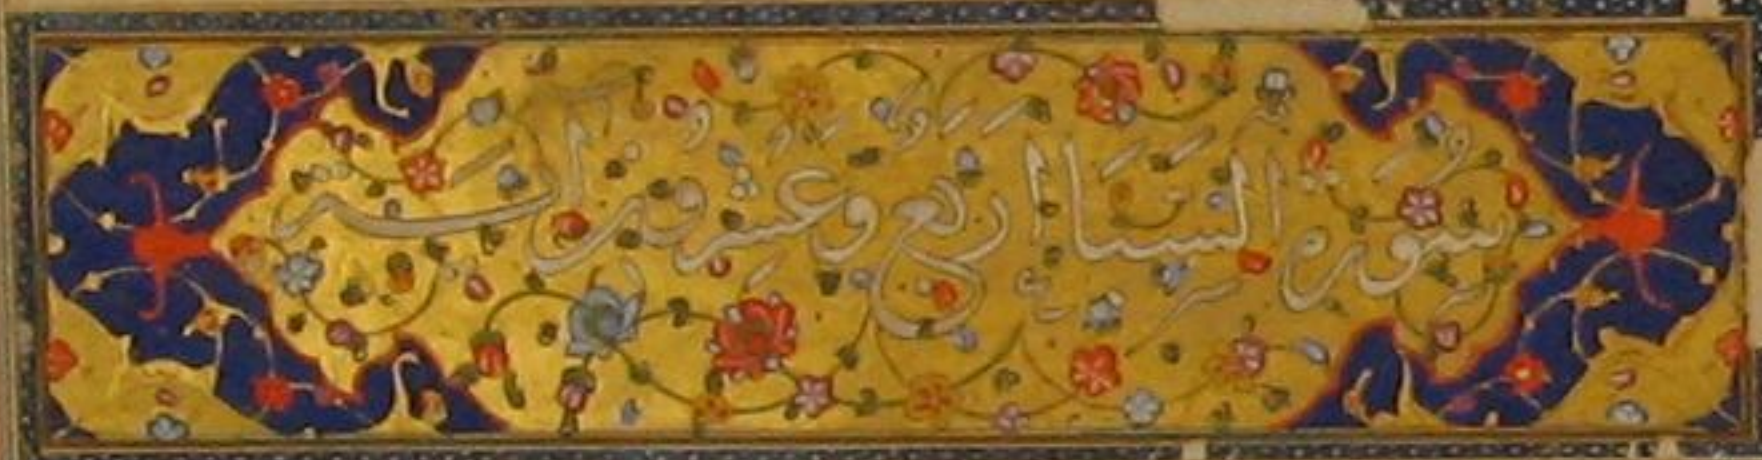 سورة السبا اربع وعشرون آية